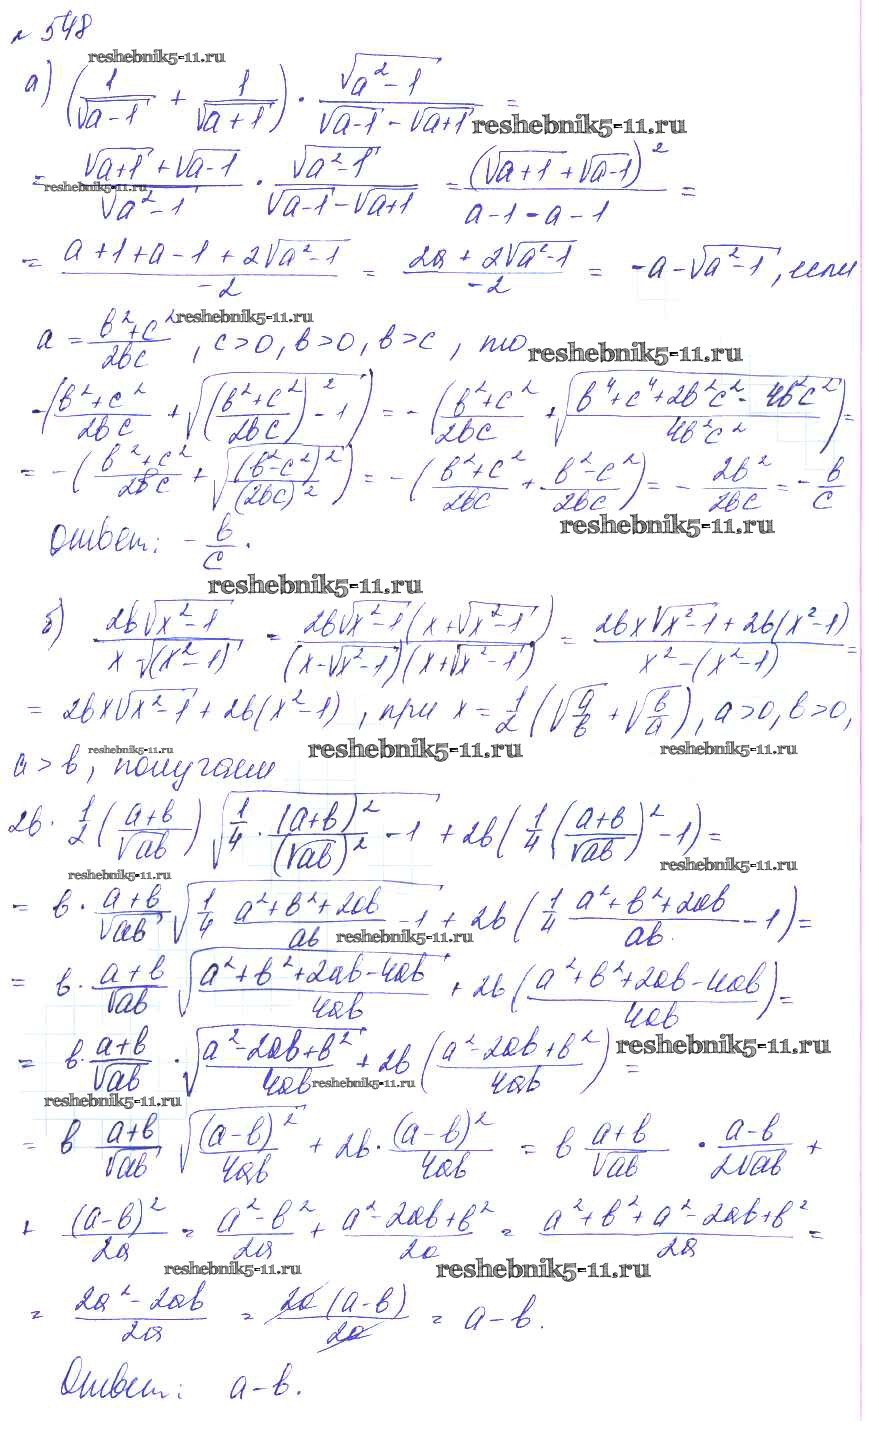 № 548
reshebnik5-11.ru
а) (1/√(a-1) + 1/√(a+1)) · √(a²-1)/(√(a-1) - √(a+1)) =
reshebnik5-11.ru
= (√(a+1) + √(a-1))/√(a²-1) · √(a²-1)/(√(a-1) - √(a+1)) = (√(a+1) + √(a-1))²/(a-1-a-1) =
reshebnik5-11.ru
= (a+1+a-1+2√(a²-1))/-2 = (2a+2√(a²-1))/-2 = -a-√(a²-1), если
reshebnik5-11.ru
a = (b²+c²)/2bc, c>0, b>0, b>c, то
reshebnik5-11.ru
-((b²+c²)/2bc + √(((b²+c²)/2bc)² - 1)) = -((b²+c²)/2bc + √((b⁴+c⁴+2b²c² - 4b²c²)/4b²c²)) =
= -((b²+c²)/2bc + √((b²-c²)²/(2bc)²)) = -((b²+c²)/2bc + (b²-c²)/2bc) = - 2b²/2bc = - b/c
reshebnik5-11.ru
Ответ: - b/c.
reshebnik5-11.ru
б) 2b√(x²-1)/(x √(x²-1)) = 2b√(x²-1)(x+√(x²-1))/((x-√(x²-1))(x+√(x²-1))) = (2bx√(x²-1) + 2b(x²-1))/(x²-(x²-1)) =
= 2bx√(x²-1) + 2b(x²-1), при x = 1/2 (√(a/b) + √(b/a)), a>0, b>0,
reshebnik5-11.ru
reshebnik5-11.ru
reshebnik5-11.ru
a > b, получаем
2b · 1/2 ((a+b)/√ab) √(1/4 · (a+b)²/(√ab)² - 1) + 2b (1/4 ((a+b)/√ab)² - 1) =
reshebnik5-11.ru
reshebnik5-11.ru
= b · (a+b)/√ab √(1/4 (a²+b²+2ab)/ab - 1) + 2b (1/4 (a²+b²+2ab)/ab - 1) =
reshebnik5-11.ru
= b · (a+b)/√ab √((a²+b²+2ab-4ab)/4ab) + 2b ((a²+b²+2ab-4ab)/4ab) =
= b · (a+b)/√ab · √((a²-2ab+b²)/4ab) + 2b ((a²-2ab+b²)/4ab) =
reshebnik5-11.ru
reshebnik5-11.ru
reshebnik5-11.ru
= b (a+b)/√ab √((a-b)²/4ab) + 2b · (a-b)²/4ab = b (a+b)/√ab · (a-b)/2√ab +
+ (a-b)²/2a = (a²-b²)/2a + (a²-2ab+b²)/2a = (a²+b²+a²-2ab+b²)/2a =
reshebnik5-11.ru
reshebnik5-11.ru
= (2a²-2ab)/2a = 2a(a-b)/2a = a-b.
Ответ: a-b.